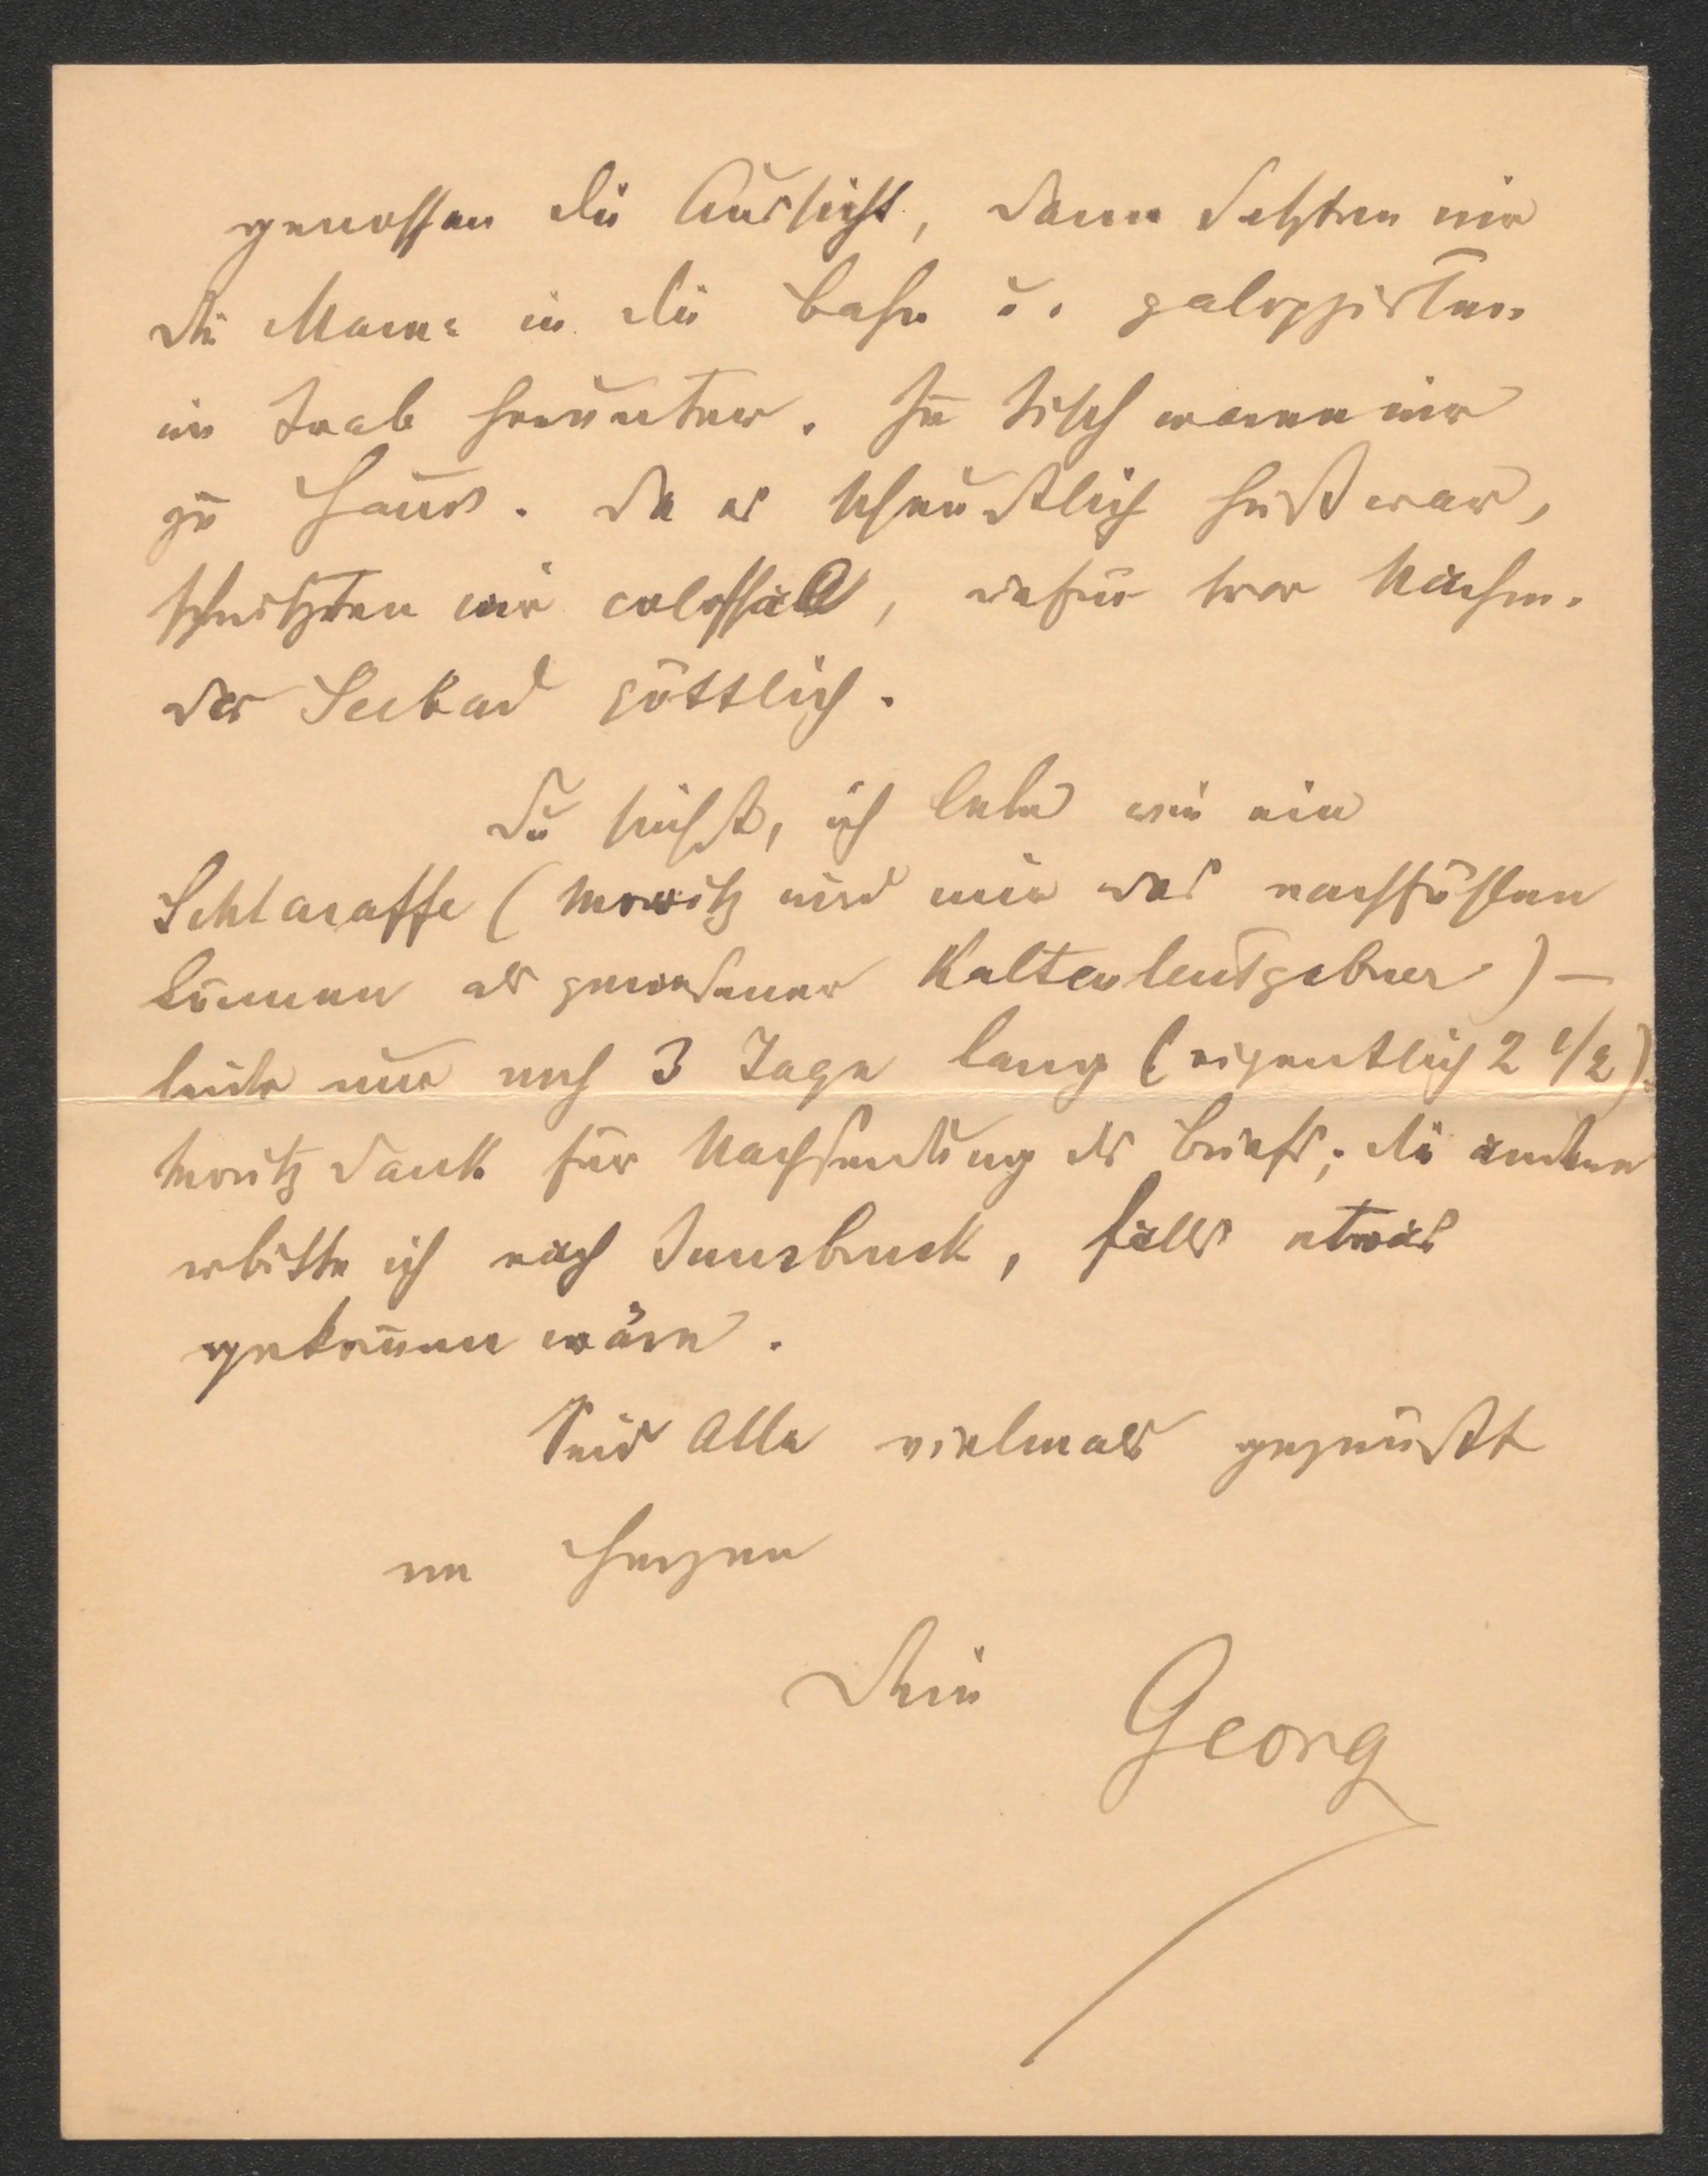 genossen die Aussicht, dann setzten wir
die Mama in die Bahn u. galoppirten
im Trab herunter. Zu Tisch waren wir
zu Haus. Da es scheußlich heiß war,
schwitzten wir colossal, dafür war Nachm.
das Seebad göttlich.
Du siehst, ich lebe wie ein
Schlaraffe (Moritz wird mir das nachfühlen
können als gewesener Kaltenleutgebner) –
leider nur noch 3 Tage lang (eigentlich 2 1/2).
Moritz Dank für Nachsendung des Briefs; die andern
erbitte ich nach Innsbruck, falls etwas
gekom̅en wäre.
Seid Alle vielmals gegrüßt
von Herzen
Dein Georg